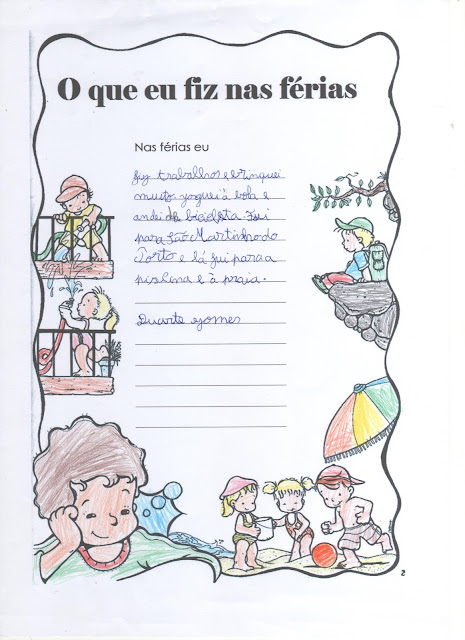 O que eu fiz nas férias
Nas férias eu
fiz trabalhos e brinquei
muito joguei à bola e
andei de bicicleta. Fui
para São Martinho do
Porto e lá fui para a
piscina e à praia.
Duarte Gomes
2